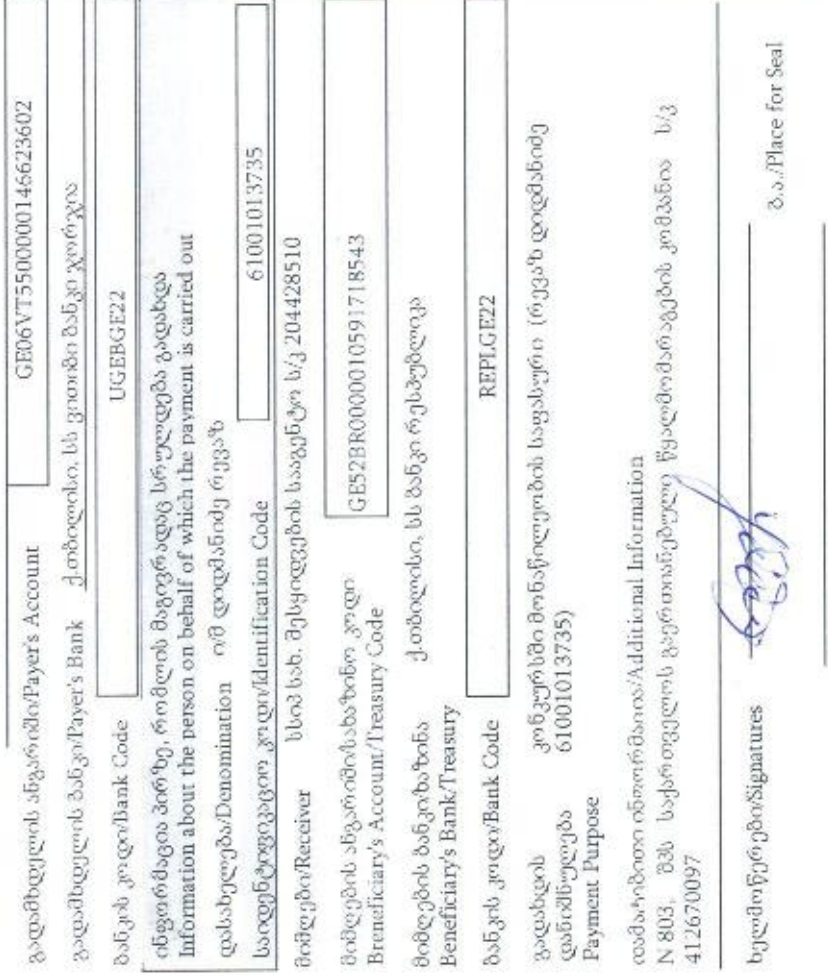 გადამხდელის ანგარიში/Payer's Account GE06VT5500000146623602
გადამხდელის ბანკი/Payer's Bank ქ.თბილისი, სს ვითიბი ბანკი ჯორჯია
ბანკის კოდი/Bank Code UGEBGE22
ინფორმაცია პირზე, რომლის მაგივრადაც სრულდება გადახდა
Information about the person on behalf of which the payment is carried out
დასახელება/Denomination ი/მ დიდმანიძე რევაზ
საიდენტიფიკაციო კოდი/Identification Code 61001013735
მიმღები/Receiver სსიპ სახ. შესყიდვების სააგენტო ს/კ 204428510
მიმღების ანგარიში/სახაზინო კოდი
Breneficiary's Account/Treasury Code GE52BR0000010591718543
მიმღების ბანკი/ხაზინა ქ.თბილისი, სს ბანკი რესპუბლიკა
Beneficiary's Bank/Treasury
ბანკის კოდი/Bank Code REPLGE22
გადახდის კონკურსში მონაწილეობის საფასური (რევაზ დიდმანიძე
დანიშნულება 61001013735)
Payment Purpose
თამატებითი ინფორმაცია/Additional Information
N 803, შპს საქართველოს გაერთიანებული წყალმომარაგების კომპანია ს/კ
412670097
ხელმოწერები/Signatures
ბ.ა./Place for Seal